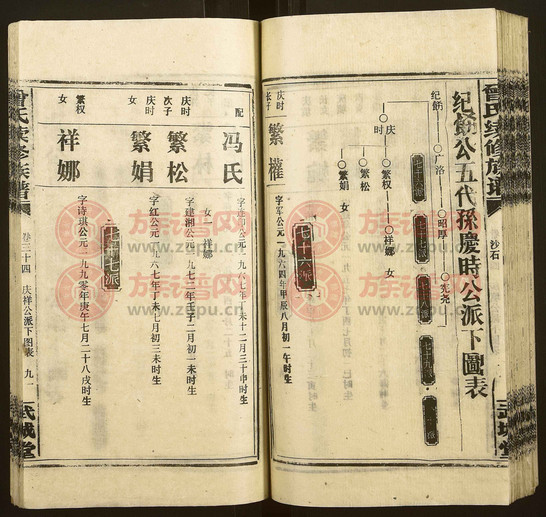 曾氏续修族谱
沙石
武城堂
纪飭公五代孫慶時公派下圖表
纪飭
广洛
昭厚
宪尧
庆时
繁权
祥娜 女
繁松
繁娟 女
七十六派
庆时
长子
繁權
字军公元一九六四年甲辰八月初一午时生
配
冯氏
女一 祥娜
庆时
次子
繁松
字建湘公元一九七二年壬子二月初一未时生
女
繁娟
字红公元一九六七年丁未七月初三未时生
七十七派
繁权
女
祥娜
字诗琪公元一九九〇年庚午七月二十八戌时生
曾氏续修族谱
卷三十四
庆祥公派下图表
九一
武城堂
族谱网
www.zupu.cn